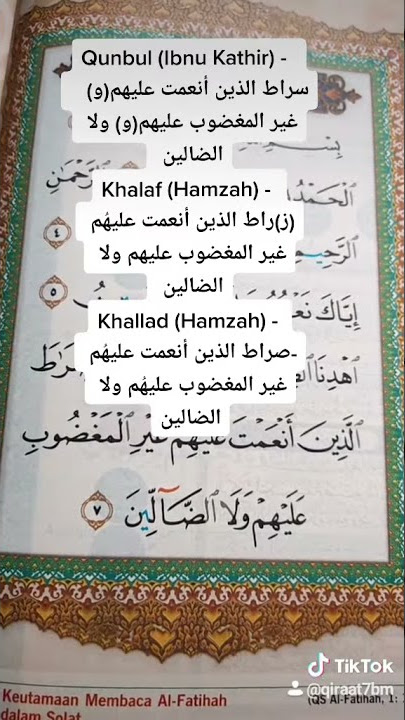 Qunbul (Ibnu Kathir) -
سراط الذين أنعمت عليهم(و)
غير المغضوب عليهم(و) ولا
الضالين
Khalaf (Hamzah) -
(ز)راط الذين أنعمت عليهُم
غير المغضوب عليهم ولا
الضالين
Khallad (Hamzah) -
صراط الذين أنعمت عليهُم-
غير المغضوب عليهُم ولا
الضالين
بِسْمِ
ٱلرَّحْمَٰنِ
ٱلْحَمْدُ
٤
ٱلرَّحِيمِ
٥
إِيَّاكَ
ٱهْدِنَا
ٱلَّذِينَ أَنْعَمْتَ عَلَيْهِمْ غَيْرِ ٱلْمَغْضُوبِ
عَلَيْهِمْ وَلَا ٱلضَّآلِّينَ ٧
TikTok
@qiraat7bm
Keutamaan Membaca Al-Fatihah
(QS Al-Fatihah, 1:
dalam Solat